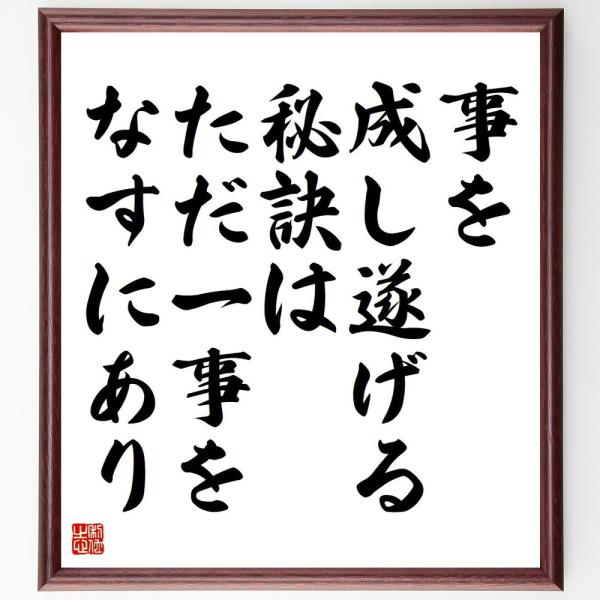 事を
成し遂げる
秘訣は
ただ一事を
なすにあり